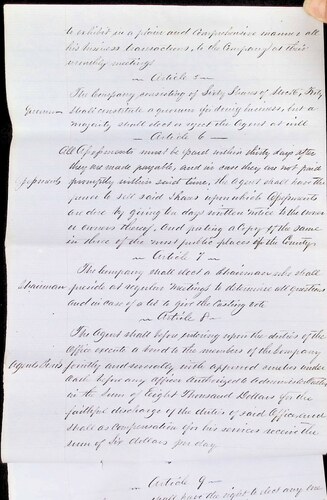 to exhibit in a plain and Comprehensive manner all
his business transactions, to the Company at their
monthly meetings
Article 5
The Company consisting of Sixty Shares of Stock, Forty
Quorum shall constitute a quorum for doing business, but a
majority shall elect or reject the Agent at will
Article 6
All Assessments must be paid within thirty days after
they are made payable, and in case they are not paid
promptly within said time, the Agent shall have the
power to sell said Shares upon which Assessments
are due by giving ten days written notice to the owner
or owners thereof, And putting a Copy of the same
in three of the most public places of the County
Article 7
The Company shall elect a Chairman who shall
Chairman preside at regular meetings to determine all questions
and in case of a tie to give the Casting vote
Article 8
The Agent shall before entering upon the duties of the
Office execute a bond to the members of the Company
Agents Bond jointly and severally with approved sureties under
oath before any officer Authorized to administer oaths
in the Sum of Eight Thousand Dollars for the
faithful discharge of the duties of said Office, and
shall as Compensation for his services receive the
sum of Six dollars per day
Article 9
shall have the right to elect any one